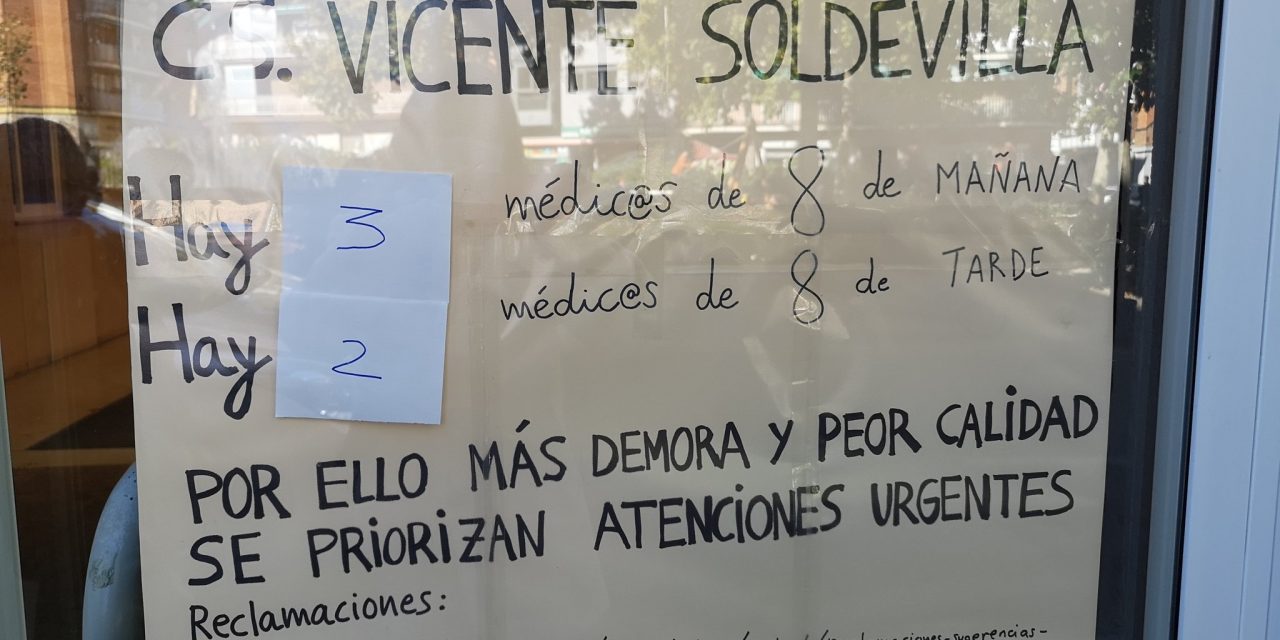 C.S. VICENTE SOLDEVILLA
Hay 3 médic@s de 8 de MAÑANA
Hay 2 médic@s de 8 de TARDE
POR ELLO MÁS DEMORA Y PEOR CALIDAD
SE PRIORIZAN ATENCIONES URGENTES
Reclamaciones: